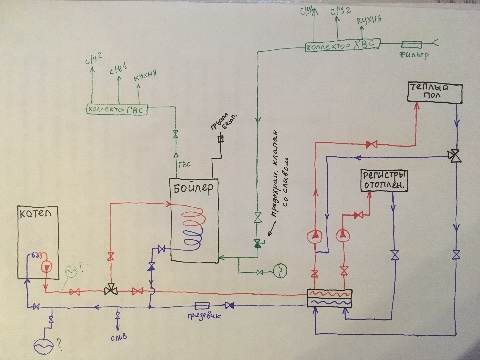 С/У1
С/У2
КУХНЯ
КОЛЛЕКТОР ХВС
ФИЛЬТР
С/У2
С/У1
КУХНЯ
КОЛЛЕКТОР ГВС
ТЕПЛЫЙ
ПОЛ
ГВС
БОЙЛЕР
предохран. клапан
со сливом
РЕГИСТРЫ
ОТОПЛЕН.
КОТЕЛ
?
?
?
СЛИВ
грязевик